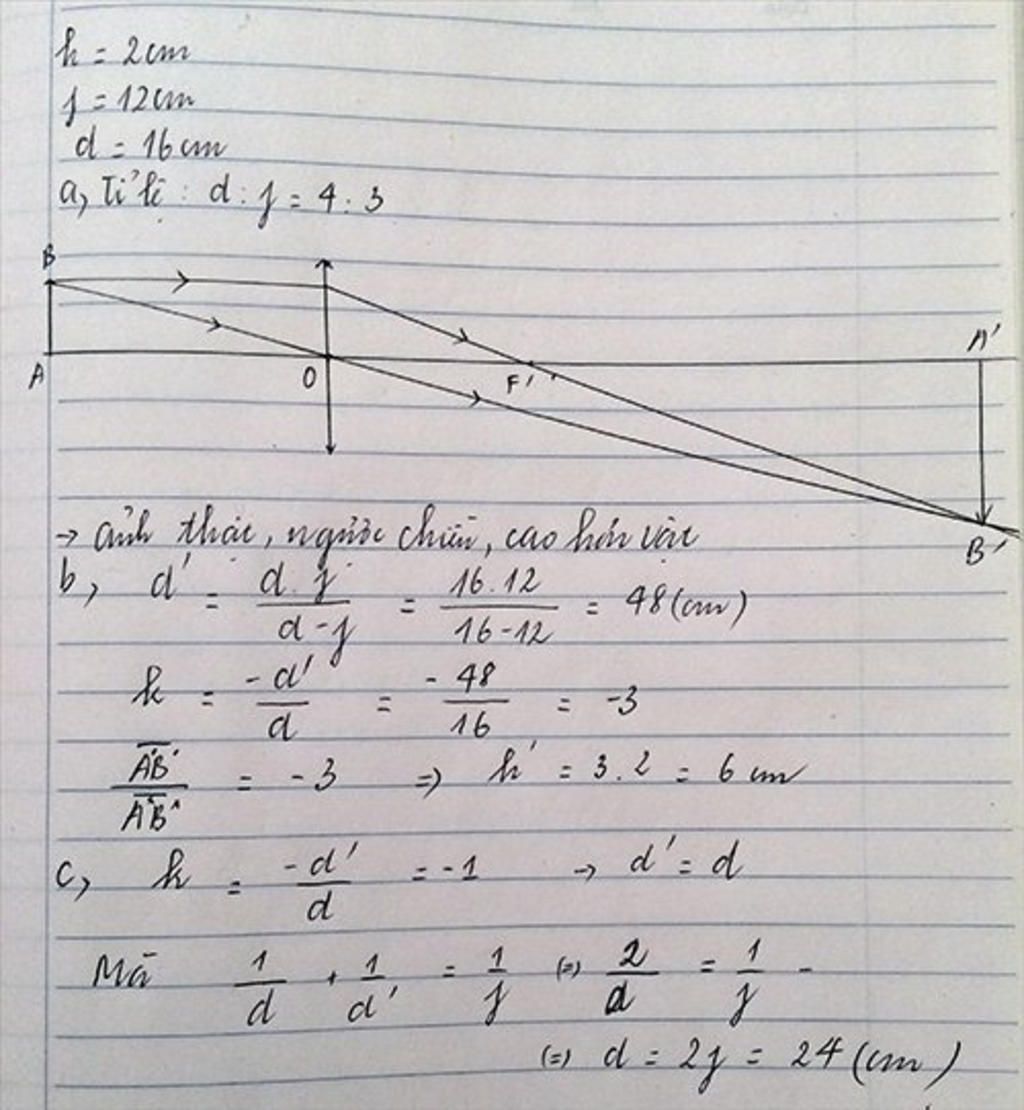 h = 2cm
f = 12cm
d = 16cm
a, Tỉ lệ : d : f = 4 : 3
B
A O F' A'
B'
→ ảnh thật, ngược chiều, cao hơn vật
b, d' = \frac{d.f}{d-f} = \frac{16.12}{16-12} = 48 (cm)
k = \frac{-d'}{d} = \frac{-48}{16} = -3
\frac{\overline{A'B'}}{\overline{AB}} = -3 => h' = 3.2 = 6 cm
c, k = \frac{-d'}{d} = -1 → d' = d
Mà \frac{1}{d} + \frac{1}{d'} = \frac{1}{f} (=) \frac{2}{d} = \frac{1}{f} -
(=) d = 2f = 24 (cm)